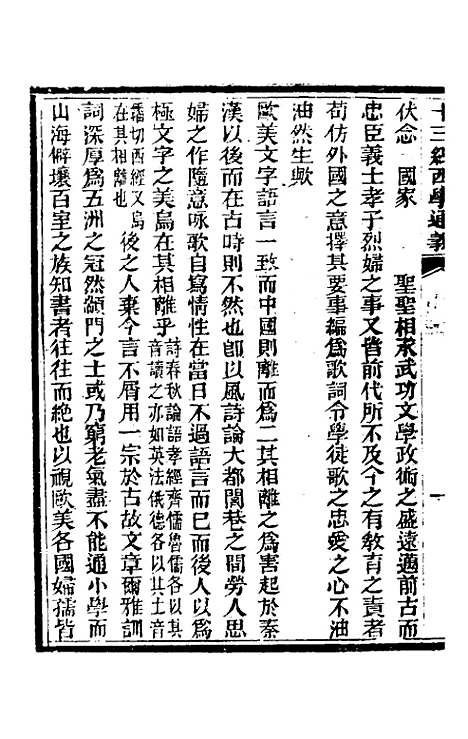 十三經西學通義
伏念　國家　　聖聖相承武功文學政術之盛遠邁前古而
忠臣義士孝子烈婦之事又皆前代所不及今之有敎育之責者
苟仿外國之意擇其要事編爲歌詞令學徒歌之忠愛之心不油
油然生歟
歐美文字語言一致而中國則離而爲二其相離之爲害起於秦
漢以後而在古時則不然也卽以風詩論大都閭巷之間勞人思
婦之作隨意咏歌自寫情性在當日不過語言而已而後人以爲
極文字之美烏在其相離乎詩春秋論語孝經齊儒魯儒各以其
音讀之亦如英法俄德各以其土音
羅切西經又烏
在其相離也　後之人棄今言不屑用一宗於古故文章爾雅訓
詞深厚爲五洲之冠然顓門之士或乃窮老氣盡不能通小學而
山海僻壤百室之族知書者往往而絶也以視歐美各國婦孺皆